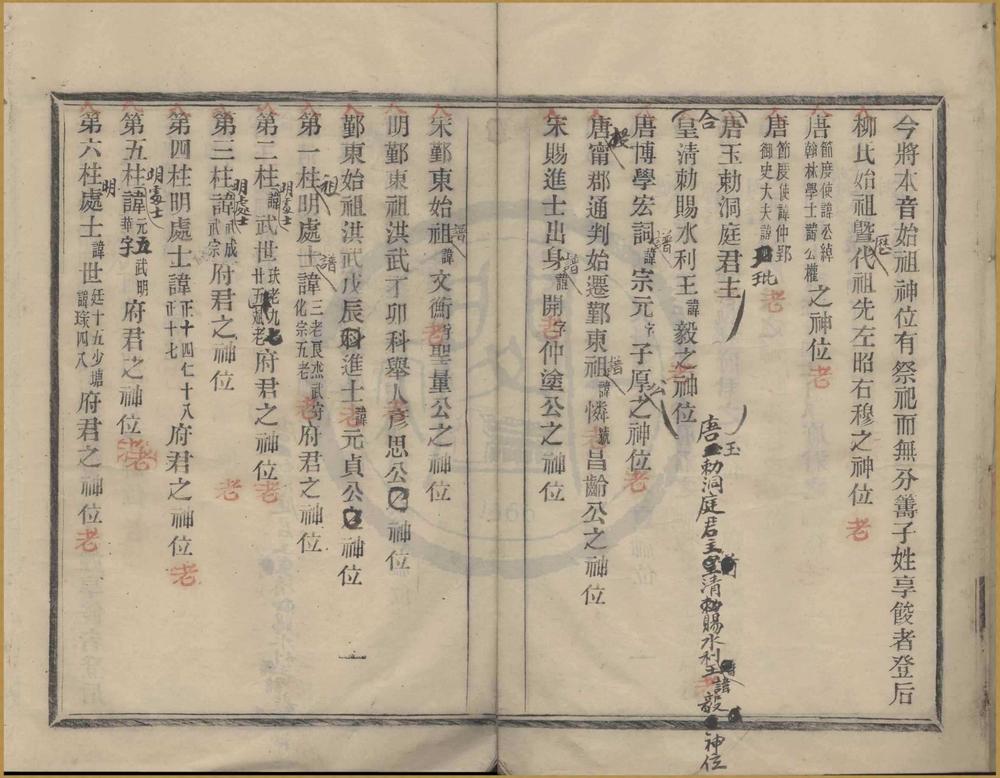 今將本音始祖神位有祭祀而無分籌子姓享餕者登后
柳氏始祖暨歷代祖先左昭右穆之神位 老
唐節度使諱公綽翰林學士諱公權之神位 老
唐節度使諱仲郢御史大夫諱玭 老
合 唐玉勅洞庭君主
皇清勅賜水利王諱毅之神位
唐玉勅洞庭君主皇清勅賜水利王諱毅神位
唐博學宏詞諱宗元字子厚公之神位 老
唐甯郡通判始遷鄞東祖諱憐號昌齡公之神位
宋賜進士出身諱開字仲塗公之神位
宋鄞東始祖諱文衡聖量公之神位
明鄞東祖洪武丁卯科舉人彥思公之神位
鄞東始祖洪武戊辰科進士諱元貞公之神位
一
第一柱祖明處士諱三老艮杰武府化宗五老府君之神位
第二柱明處士諱武世玞老九廿五斌老府君之神位 老
第三柱明處士諱武成武宗府君之神位 老
第四柱明處士諱正十四仁十八正十七府君之神位 老
第五柱明處士諱元五武明華字府君之神位 老
第六柱明處士諱世廷十五少塘諱球四八府君之神位 老